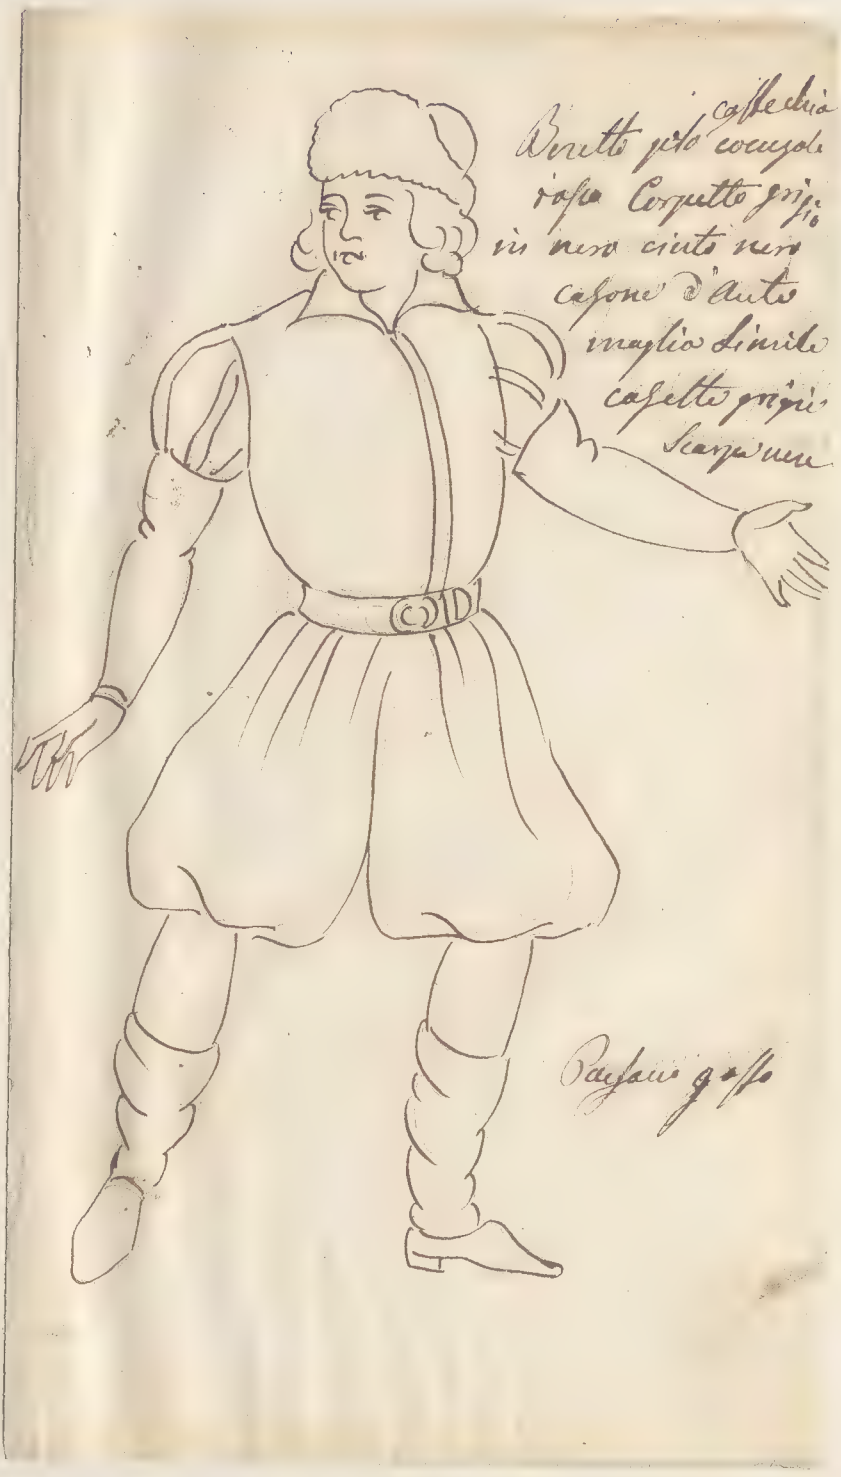 Beretto pelo
rossa Corpetto grigio
in nero cinto nero
casone d'Anto
maglia Simile
casette grigie
Scarpe nere
Paesano goffo